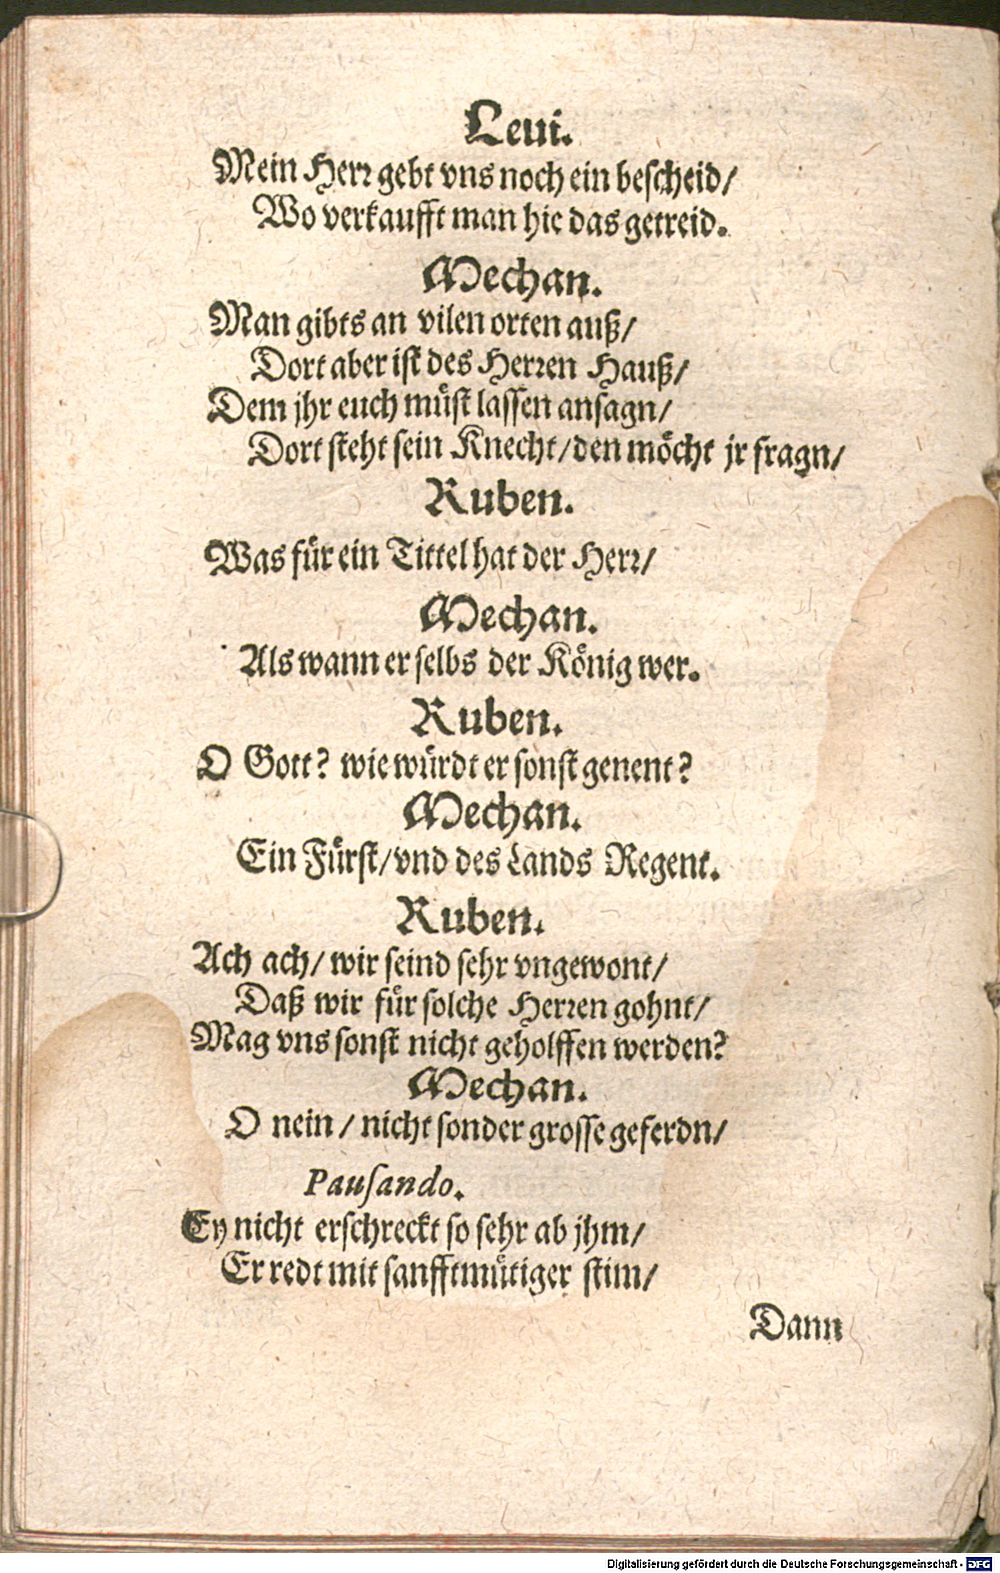 Leui.
Mein Herr gebt vns noch ein bescheid/
Wo verkaufft man hie das getreid.
Mechan.
Man gibts an vilen orten auß/
Dort aber ist des Herren Hauß/
Dem jhr euch müst lassen ansagn/
Dort steht sein Knecht/den möcht jr fragn/
Ruben.
Was für ein Tittel hat der Herr/
Mechan.
Als wann er selbs der König wer.
Ruben.
O Gott? wie würdt er sonst genent?
Mechan.
Ein Fürst/vnd des Lands Regent.
Ruben.
Ach ach/ wir seind sehr vngewont/
Daß wir für solche Herren gohnt/
Mag vns sonst nicht geholffen werden?
Mechan.
O nein / nicht sonder grosse geferdn/
Pausando.
Ey nicht erschreckt so sehr ab jhm/
Er redt mit sanfftmütiger stim/
Dann
Digitalisierung gefördert durch die Deutsche Forschungsgemeinschaft - DFG